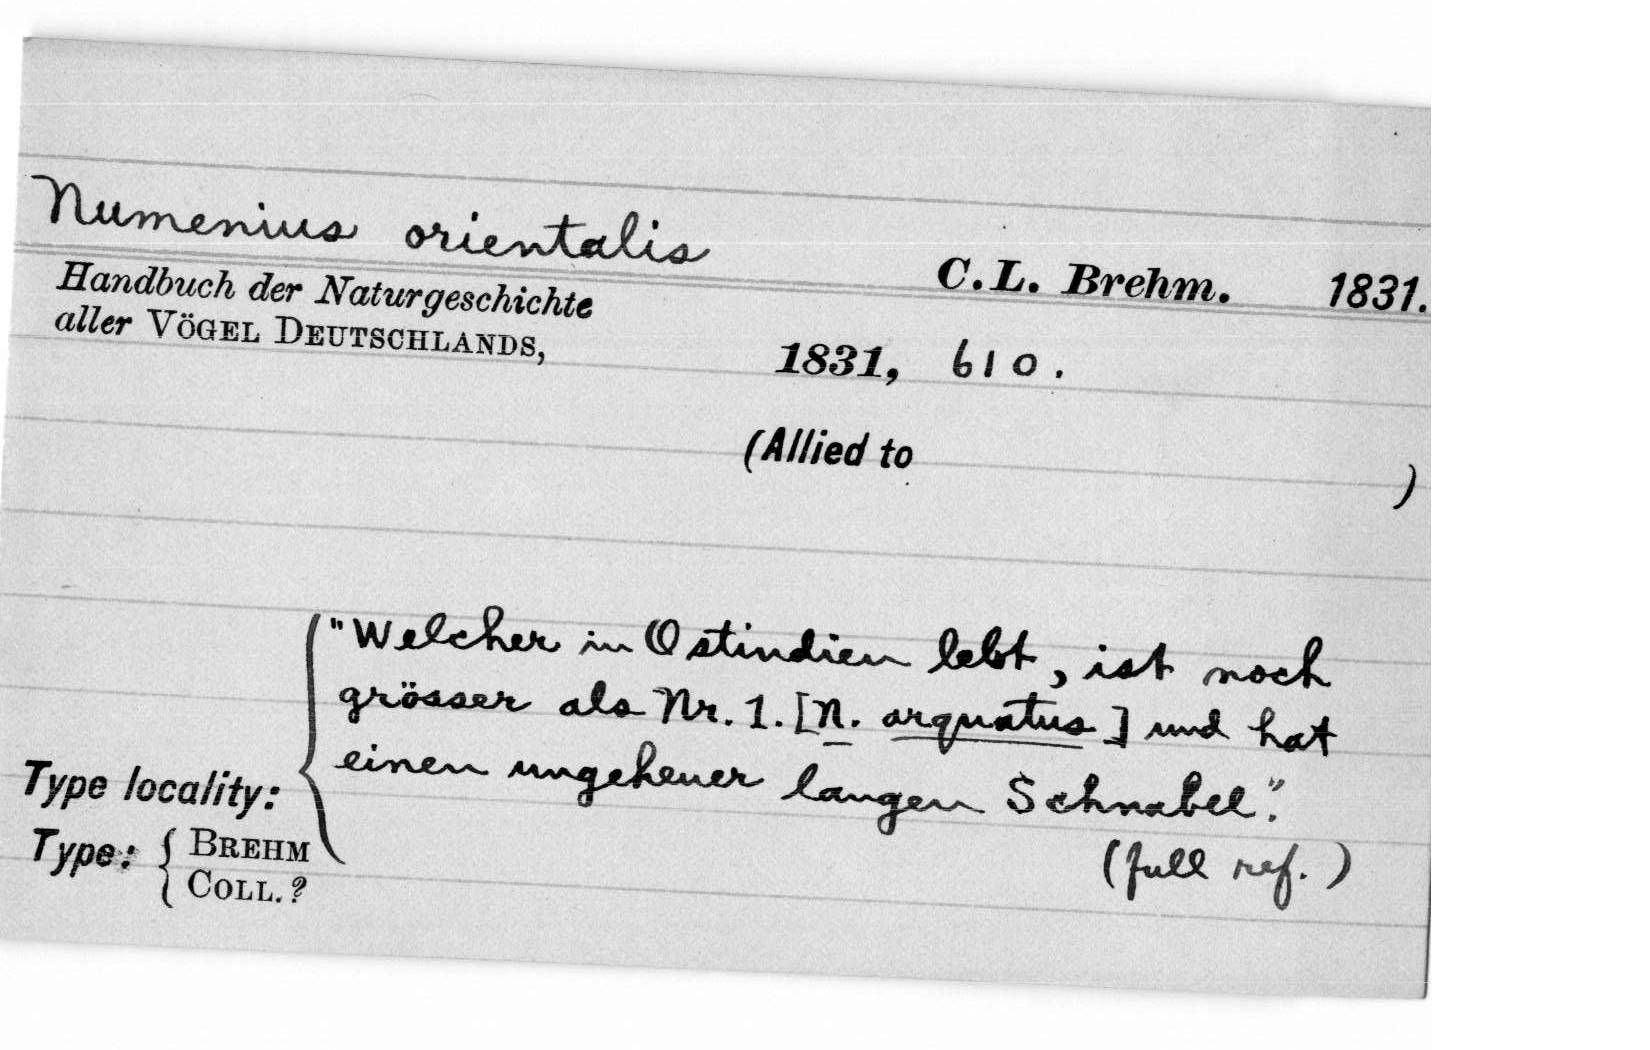 Numenius orientalis
C. L. Brehm. 1831.
Handbuch der Naturgeschichte
aller VÖGEL DEUTSCHLANDS,
1831, 610.
(Allied to )
"Welcher in Ostindien lebt, ist noch
grösser als Nr. 1. [N. arquatus] und hat
einen ungeheuer langen Schnabel."
Type locality:
(full ref.)
Type: { BREHM
COLL. ?